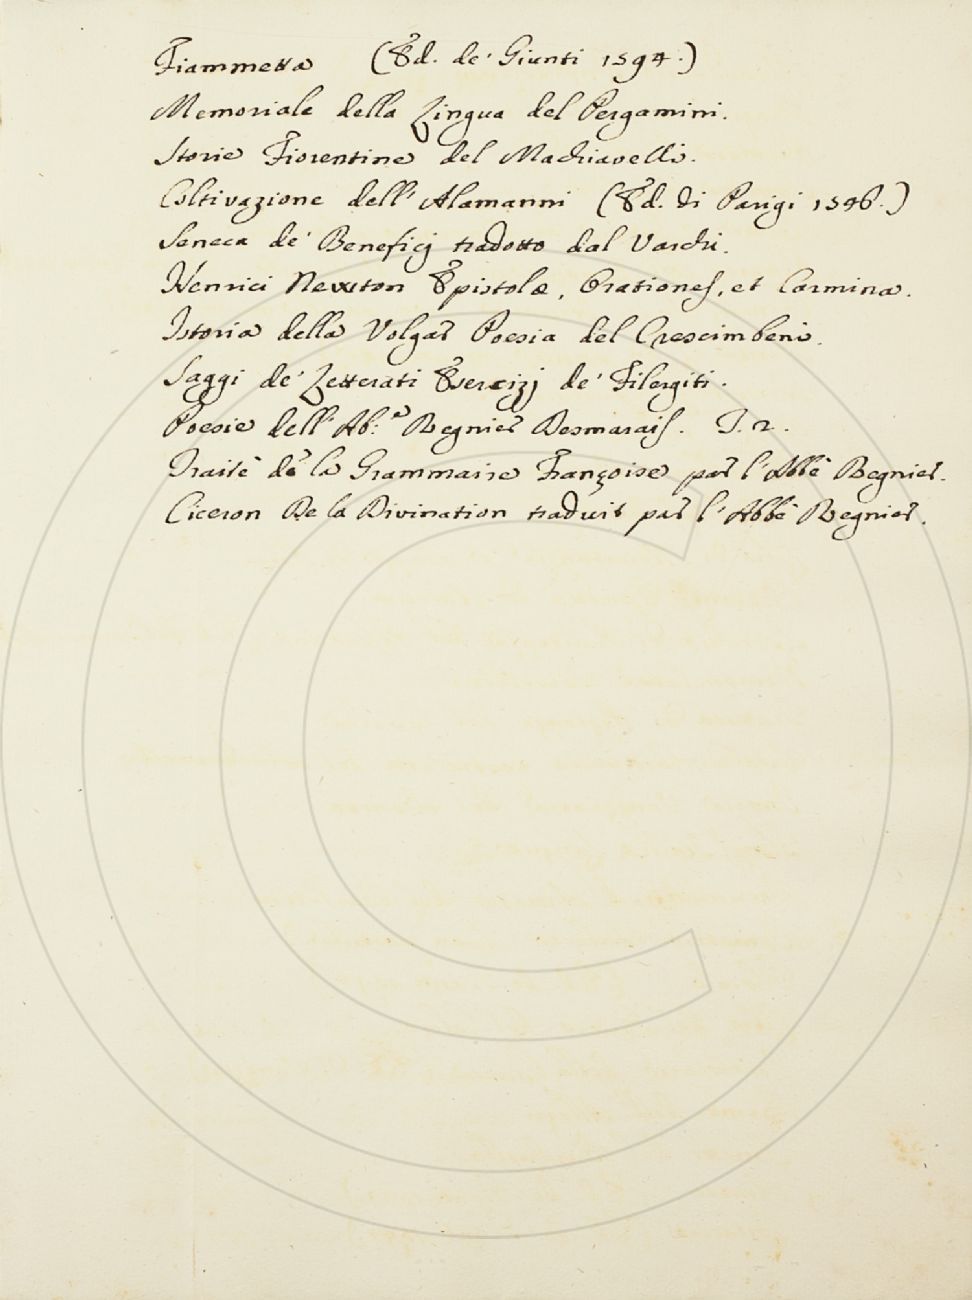 Fiammetta (Ed. de' Giunti 1594.)
Memoriale della Lingua del Pergamini.
Storie Fiorentine del Machiavelli.
Coltivazione dell' Alamanni (Ed. di Parigi 1546.)
Seneca de' Beneficj tradotto dal Varchi.
Henrici Newton Epistolæ, Orationes, et Carmina.
Istoria della Volgar Poesia del Crescimbeni.
Saggi de' Letterati Esercizj de' Filergiti.
Poesie dell' Ab.ᵉ Regnier Desmarais. T. 2.
Traité de la Grammaire Françoise par l'Abbé Regnier.
Ciceron De la Divination traduit par l'Abbé Regnier.